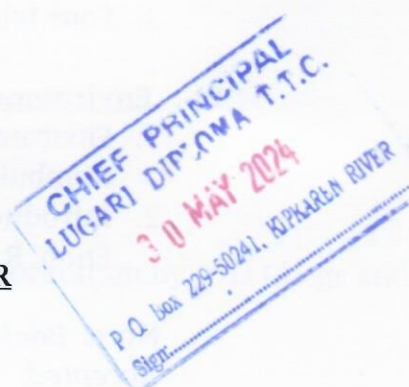 CHIEF PRINCIPAL
LUGARI DIPLOMA T.T.C.
30 MAY 2024
P. O. Box 229-50241, KIPKAREN RIVER
Sign
R